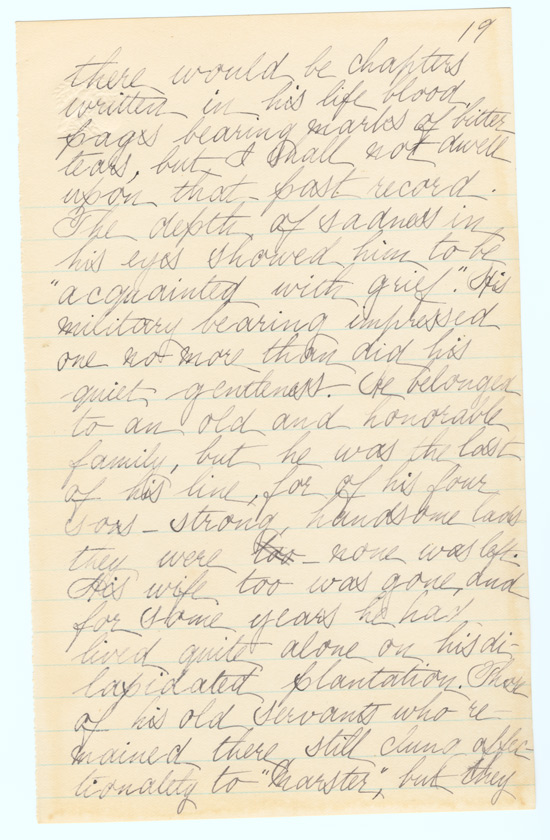 19
there would be chapters
written in his life blood,
pages bearing marks of bitter
tears, but I shall not dwell
upon that past record.
The depth of sadness in
his eyes showed him to be
"acquainted with grief". His
military bearing impressed
one no more than did his
quiet gentleness. He belonged
to an old and honorable
family, but he was the last
of his line, for of his four
sons - strong, handsome lads
they were too - none was left.
His wife too was gone, and
for some years he had
lived quite alone on his di-
lapidated plantation. Those
of his old servants who re-
mained there, still clung affec-
tionality to "Marster", but they